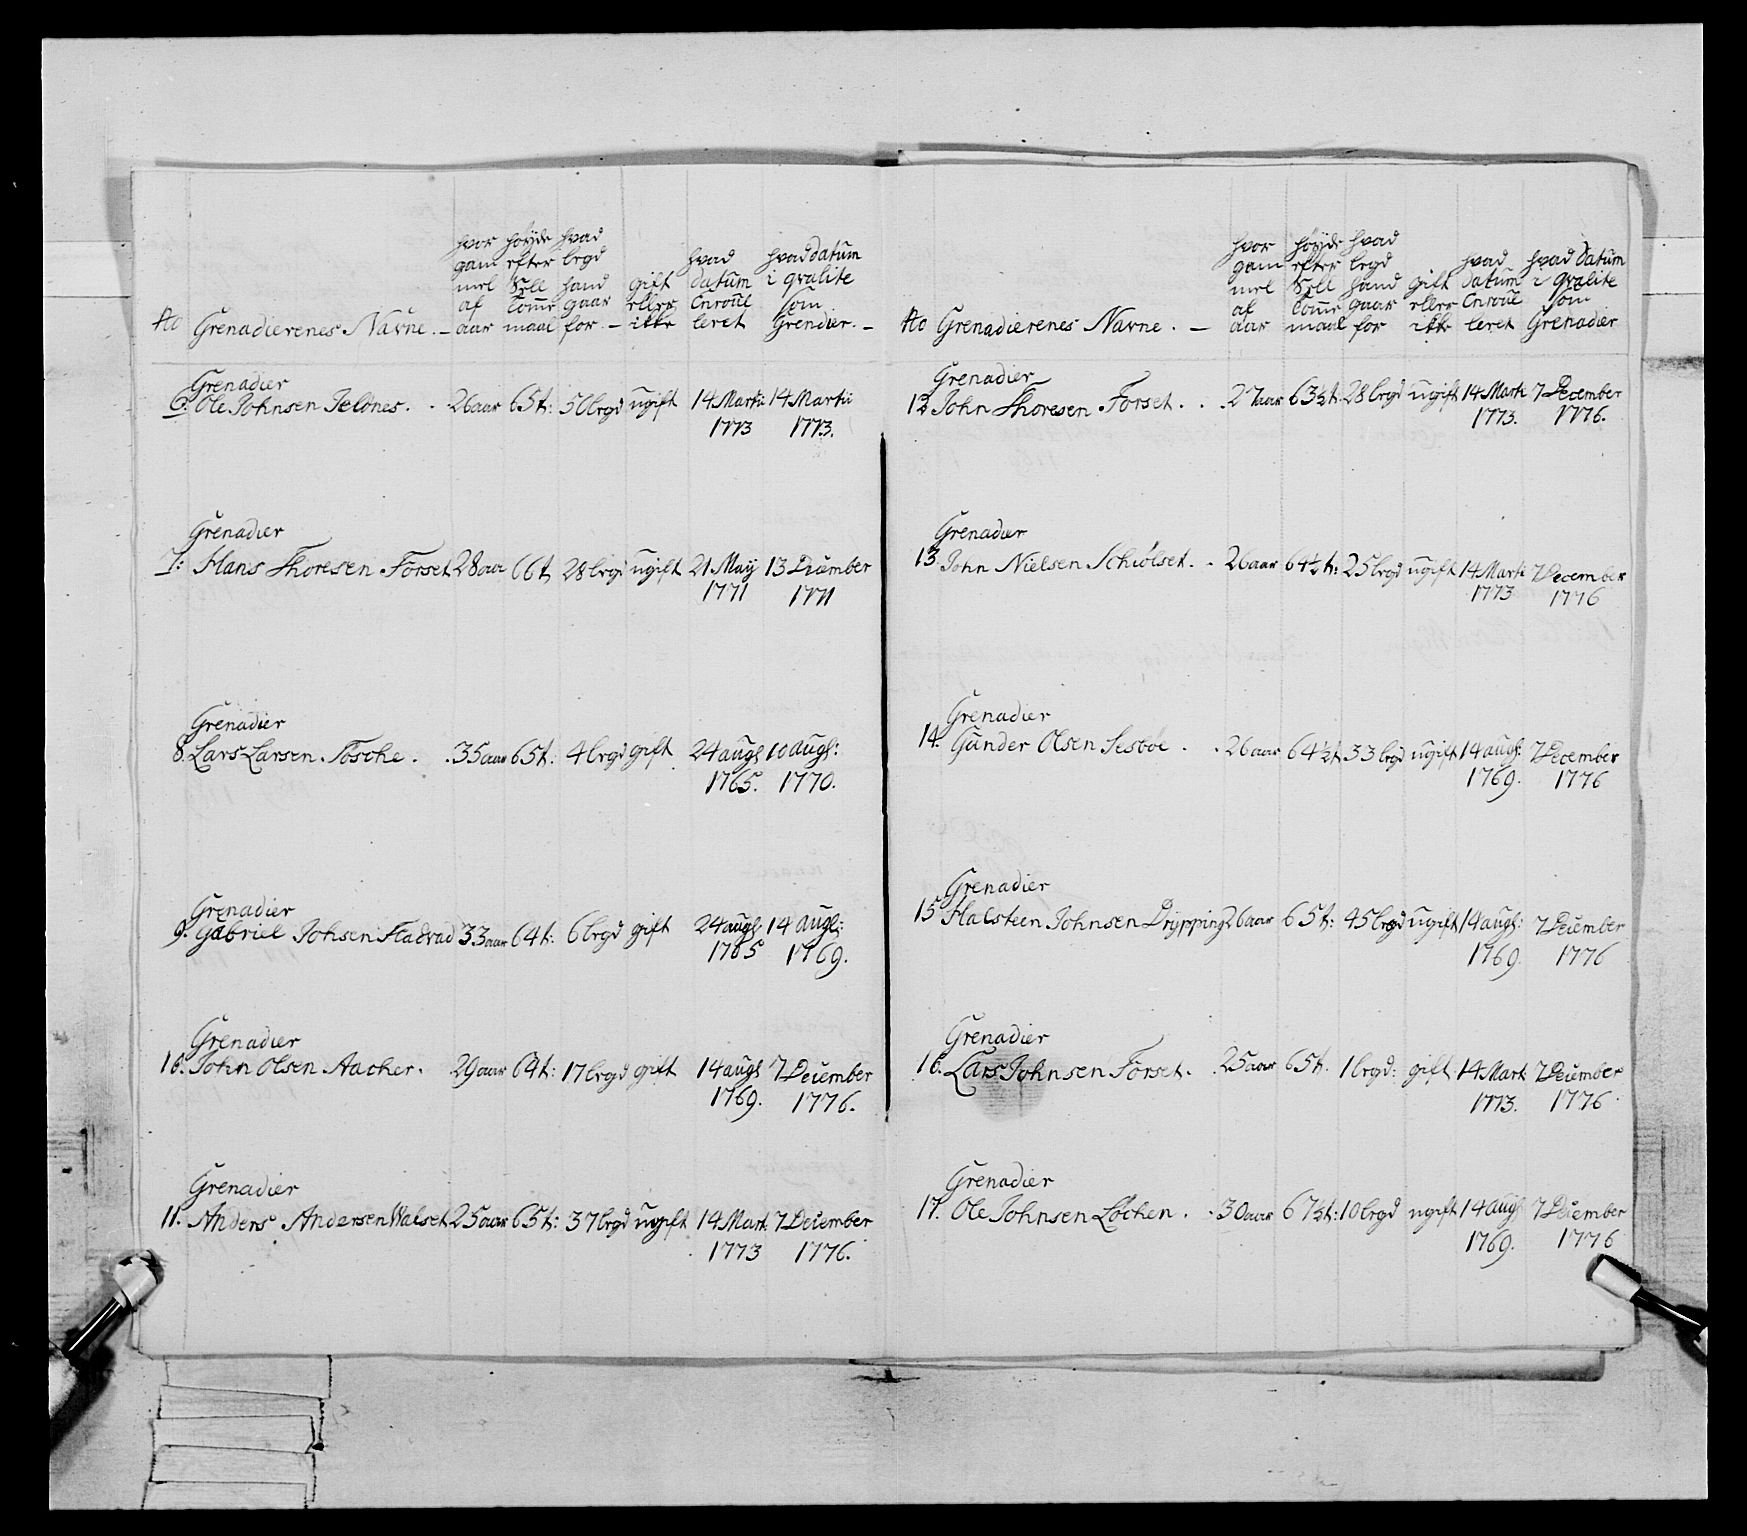 No Grenadierenes Navne. — hvor gammel af aar høyde efter Sell: Tomme maal hvad legd hand gaar for — gift eller ikke hvad datum Enroulleret hvad datum i qvalite som Grendier. —
Grenadier
6. Ole Johnsen Seldnes. . 26 aar 65 t: 50 legd ugift 14 Martii 14 Martii
1773 1773.
Grenadier
7: Hans Thoresen Forset 28 aar 66 t 28 legd ugift 21 May 13 December
1771 1771
Grenadier
8. Lars Larsen Fosche. . 35 aar 65 t: 4 legd gift 24 augl 10 augl:
1765. 1770.
Grenadier
9. Gabriel Johsen Stadvad 33 aar 64 t: 6 legd gift 24 augl 14 augl:
1765 1769.
Grenadier
10. John Olsen Aacher. 29 aar 64 t: 17 legd gift 14 augl 7 December
1769. 1776.
Grenadier
11. Anders Andersen Walset 25 aar 65 t: 37 legd ugift 14 Mart 7 December
1773 1776.
No Grenadierenes Navne. — hvor gammel af aar høyde efter Sell: Tomme maal hvad legd hand gaar for gift eller ikke hvad datum Enroulleret hvad datum i qvalite som Grenadier
Grenadier
12 John Thoresen Forset. . . 27 aar 63½ t. 28 legd ugift 14 Marti 7 December
1773. 1776.
Grenadier
13. John Nielsen Schiölset. . 26 aar 64½ t: 25 legd ugift 14 Marti 7 December
1773 1776
Grenadier
14. Gunder Olsen Sesboe . . 26 aar 64½ t 33 legd ugift 14 augl: 7 December
1769. 1776
Grenadier
15 Halsteen Johnsen Drypping 26 aar 65 t: 45 legd ugift 14 augl: 7 December
1769. 1776
Grenadier
16. Lars Johnsen Forset. . 25 aar 65 t. 1 legd: gift 14 Mart 7 December
1773. 1776
Grenadier
17. Ole Johnsen Löchen . . 30 aar 67½ t: 10 legd ugift 14 augl 7 December
1769. 1776